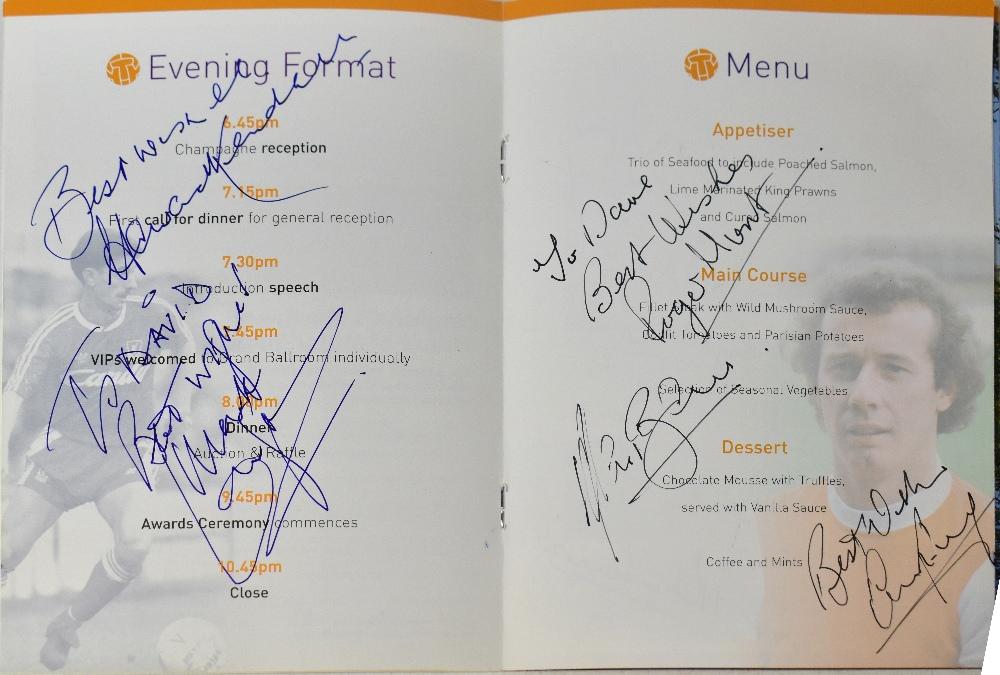 Evening Format
6.45pm
Champagne reception
7.15pm
First call for dinner for general reception
7.30pm
Introduction speech
7.45pm
VIPs welcomed to Grand Ballroom individually
8.00pm
Dinner
Auction & Raffle
9.45pm
Awards Ceremony commences
10.45pm
Close
Best wishes
Howard Kendall
To DAVID
Best wishes
Mark
Menu
Appetiser
Trio of Seafood to include Poached Salmon,
Lime Marinated King Prawns
and Cured Salmon
Main Course
Fillet Steak with Wild Mushroom Sauce,
Confit Tomatoes and Parisian Potatoes
Selection of Seasonal Vegetables
Dessert
Chocolate Mousse with Truffles,
served with Vanilla Sauce
Coffee and Mints
To Dave
Best Wishes
Roger Hunt
Best Wish